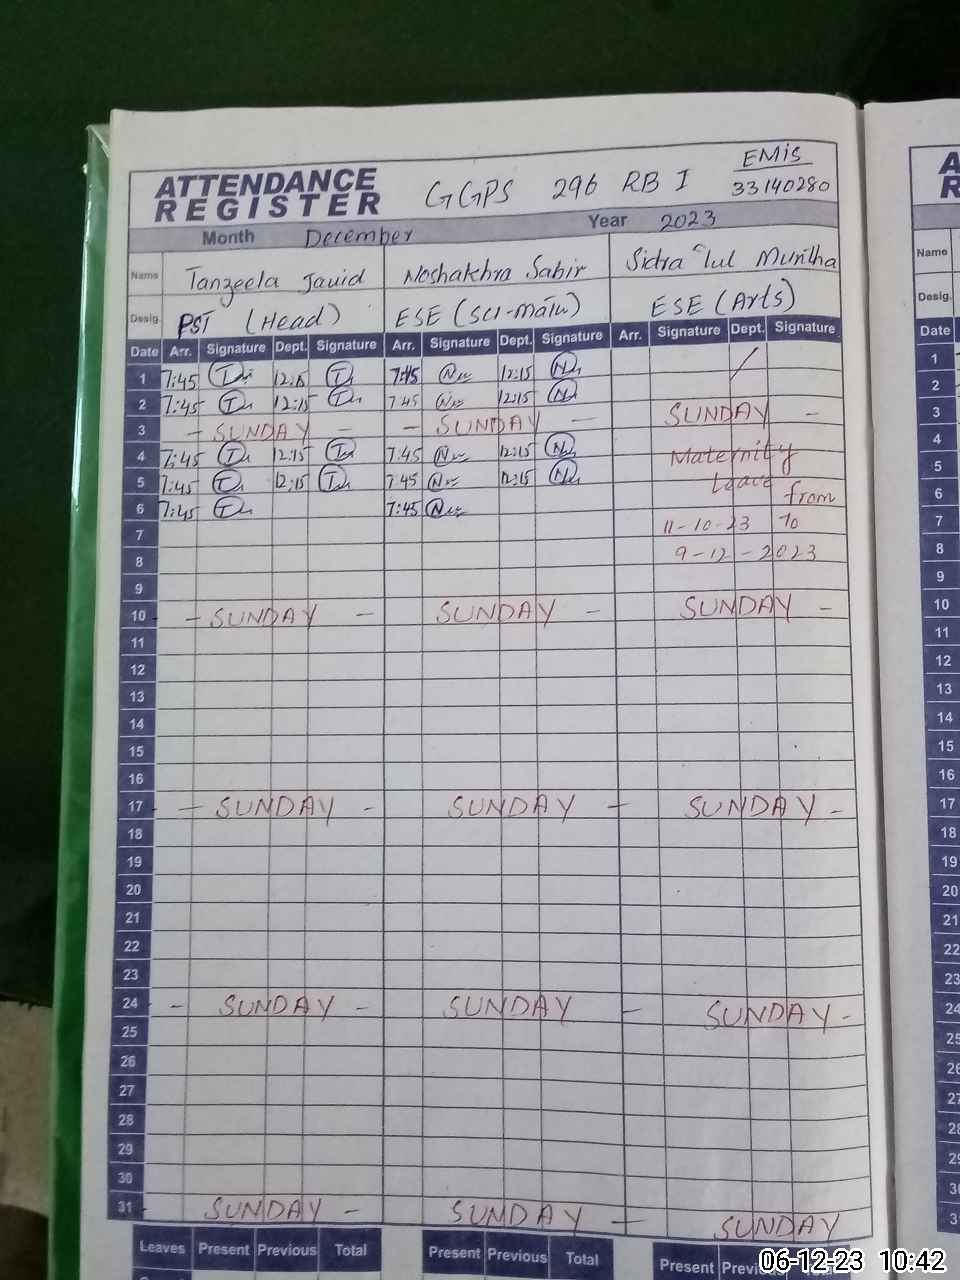 ATTENDANCE REGISTER GGPS 296 RB I EMIS 33140280
Month December Year 2023
Name Tanzeela Javid Noshakhra Sabir Sidra Tul Muntha
Desig. PST (Head) ESE (Sci-Math) ESE (Arts)
Date Arr. Signature Dept. Signature Arr. Signature Dept. Signature Arr. Signature Dept. Signature
1 7:45 12:15 7:45 12:15
2 7:45 12:15 7:45 12:15
3 - SUNDAY - - SUNDAY - SUNDAY -
4 7:45 12:15 7:45 12:15 Maternity
5 7:45 12:15 7:45 12:15 Leave
6 7:45 7:45 from
7 11-10-23 to
8 9-12-2023
9
10 - SUNDAY - SUNDAY - SUNDAY -
11
12
13
14
15
16
17 - SUNDAY - SUNDAY - SUNDAY -
18
19
20
21
22
23
24 - SUNDAY - SUNDAY - SUNDAY -
25
26
27
28
29
30
31 SUNDAY - SUNDAY - SUNDAY
Leaves Present Previous Total Present Previous Total Present
Name
Desig.
Date
1
2
3
4
5
6
7
8
9
10
11
12
13
14
15
16
17
18
19
20
21
22
23
24
25
26
27
28
29
06-12-23 10:42